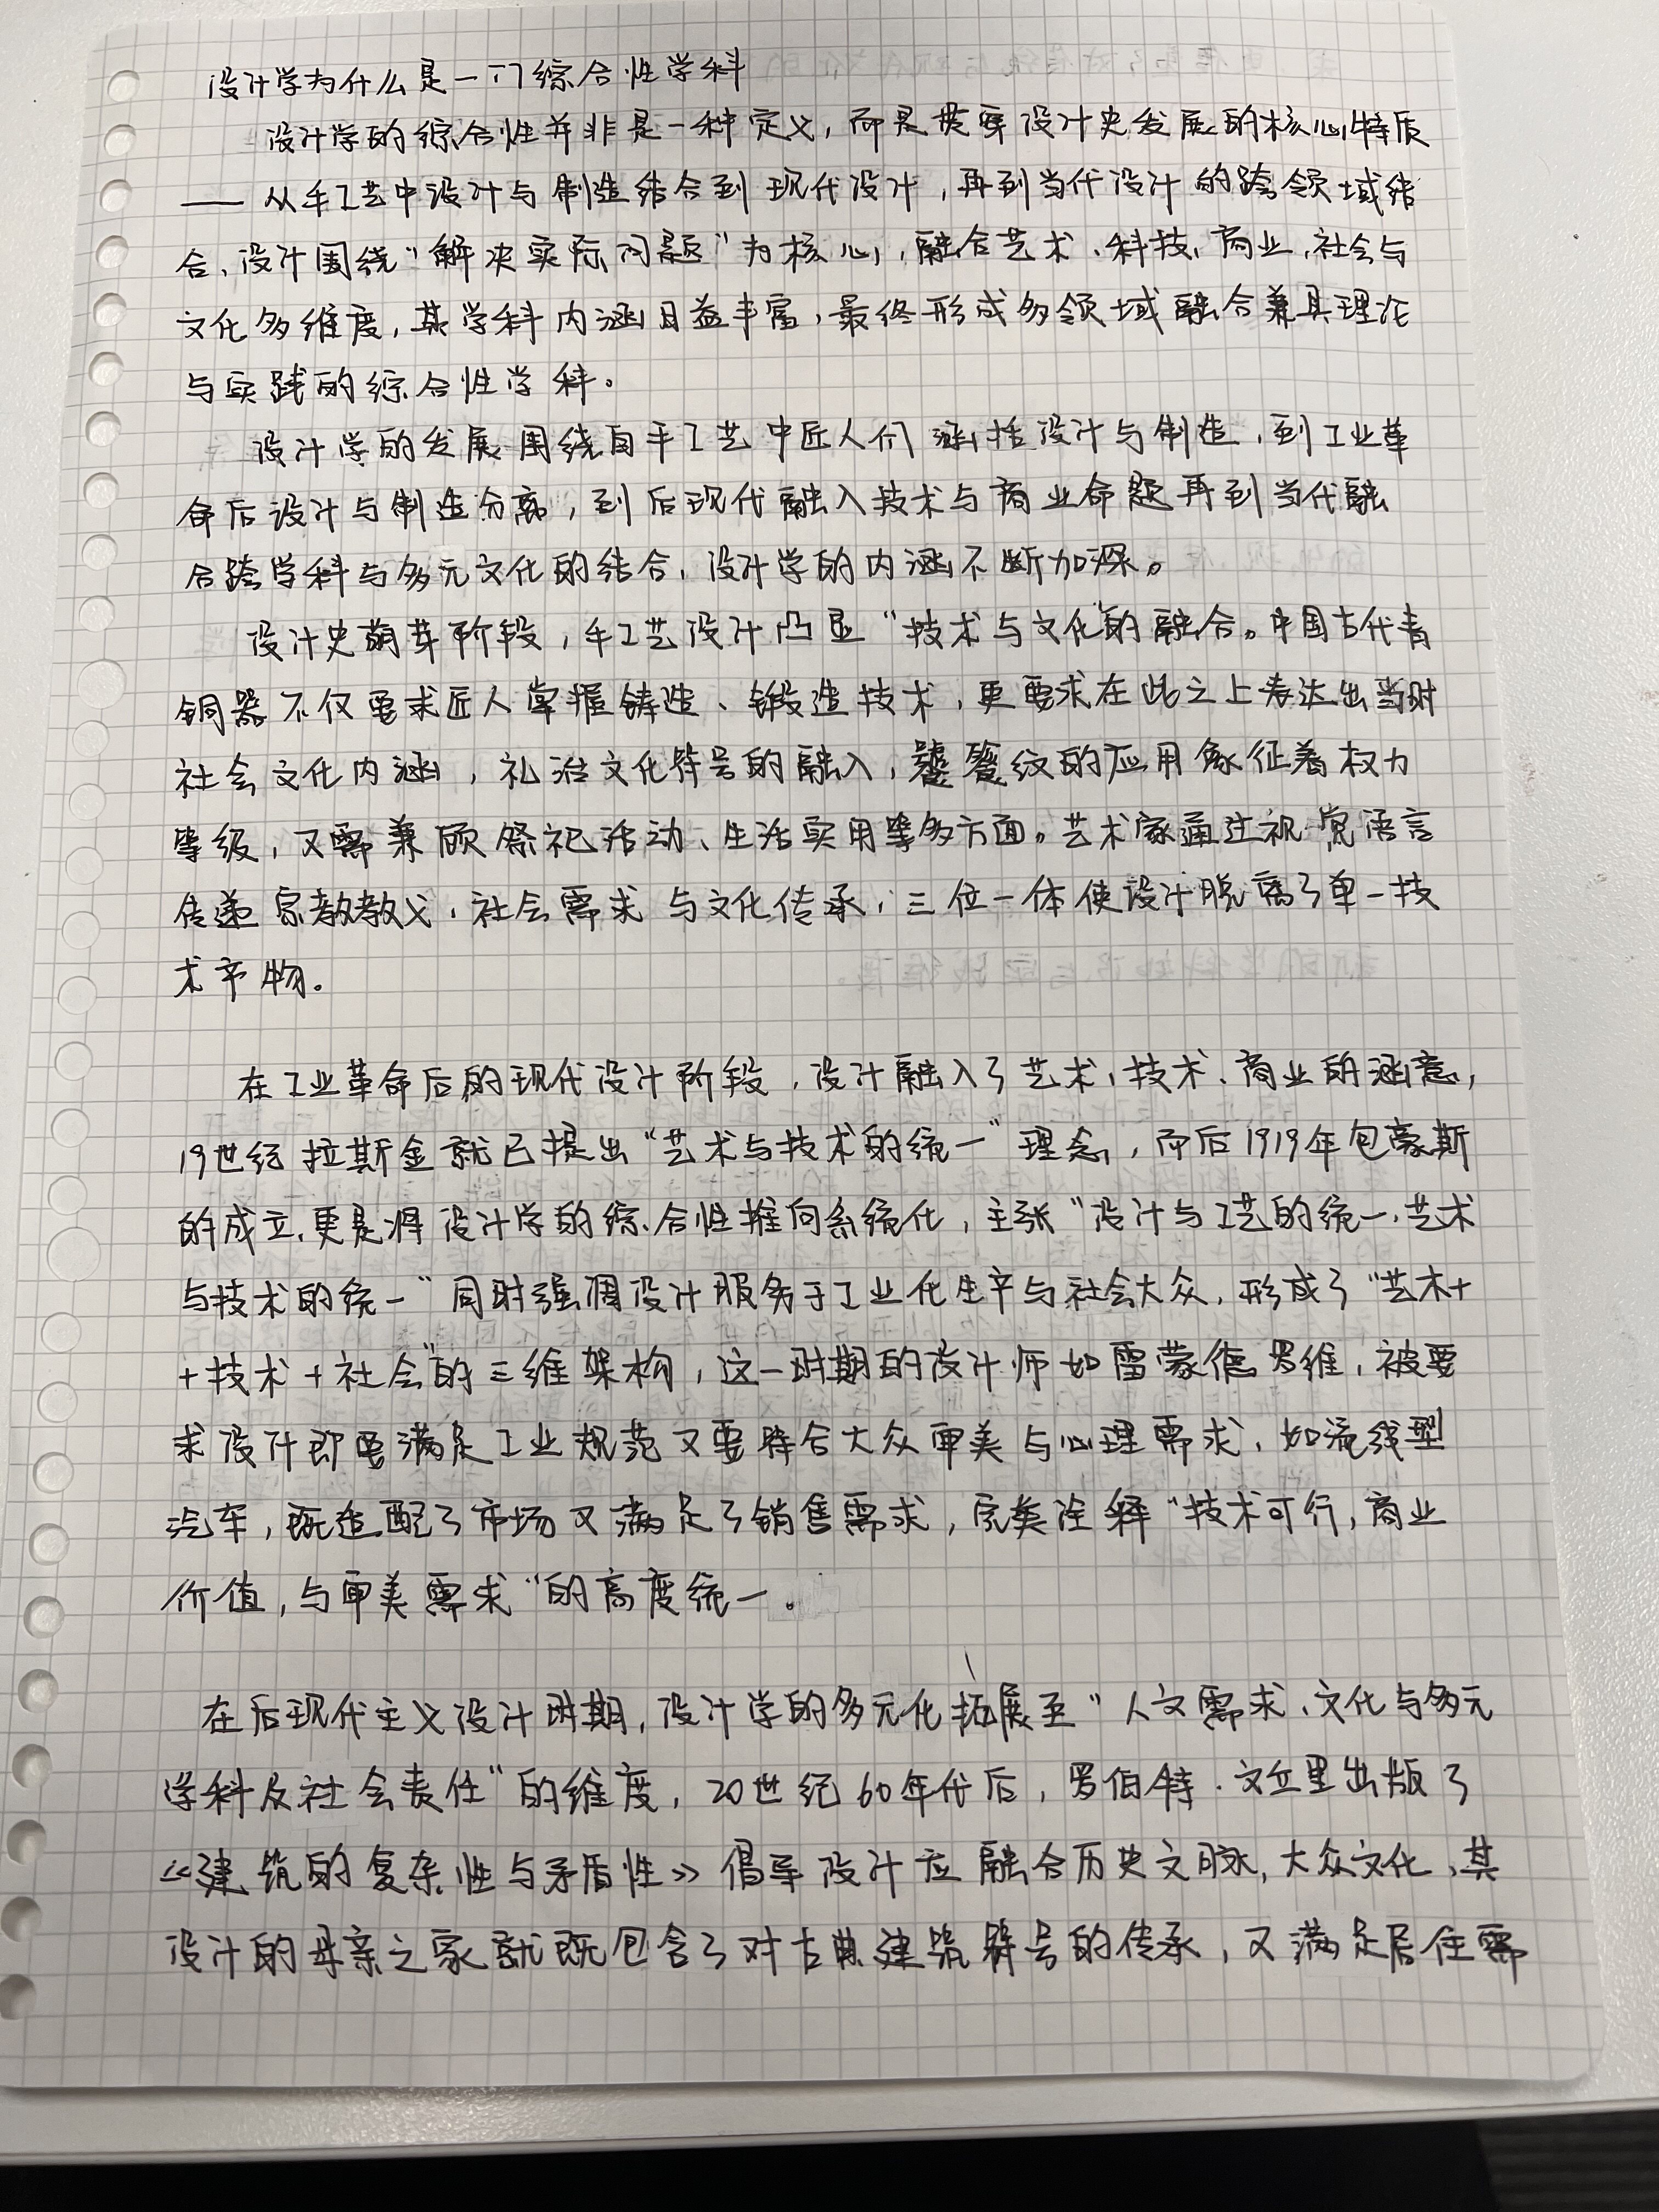 设计学为什么是一门综合性学科
设计学的综合性并非是一种定义，而是贯穿设计史发展的核心特质
——从手工艺中设计与制造结合到现代设计，再到当代设计的跨领域结
合、设计围绕“解决实际问题”为核心，融合艺术、科技、商业、社会与
文化多维度，其学科内涵日益丰富，最终形成多领域融合兼具理论
与实践的综合性学科。
设计学的发展围绕自手工艺中匠人们涵括设计与制造，到工业革
命后设计与制造分离，到后现代融入技术与商业命题再到当代融
合跨学科与多元文化的结合，设计学的内涵不断加深。
设计史萌芽阶段，手工艺设计凸显“技术与文化的融合。中国古代青
铜器不仅要求匠人掌握铸造、锻造技术，更要求在此之上表达出当时
社会文化内涵，礼治文化符号的融入，饕餮纹的应用象征着权力
等级，又需兼顾祭祀活动、生活实用等多方面。艺术家通过视觉语言
传递宗教教义、社会需求与文化传承，三位一体使设计脱离了单一技
术产物。
在工业革命后的现代设计阶段，设计融入了艺术、技术、商业的涵意，
19世纪拉斯金就已提出“艺术与技术的统一”理念，而后1919年包豪斯
的成立，更是将设计学的综合性推向系统化，主张“设计与工艺的统一、艺术
与技术的统一”同时强调设计服务于工业化生产与社会大众，形成了“艺术+
+技术+社会”的三维架构，这一时期的设计师如雷蒙德罗维，被要
求设计即要满足工业规范又要符合大众审美与心理需求，如流线型
汽车，既适配了市场又满足了销售需求，完美诠释“技术可行，商业
价值，与审美需求”的高度统一。
在后现代主义设计时期，设计学的多元化拓展至“人文需求、文化与多元
学科及社会责任”的维度，20世纪60年代后，罗伯特·文丘里出版了
《建筑的复杂性与矛盾性》倡导设计应融合历史文脉，大众文化，其
设计的母亲之家就既包含了对古典建筑符号的传承，又满足居住需